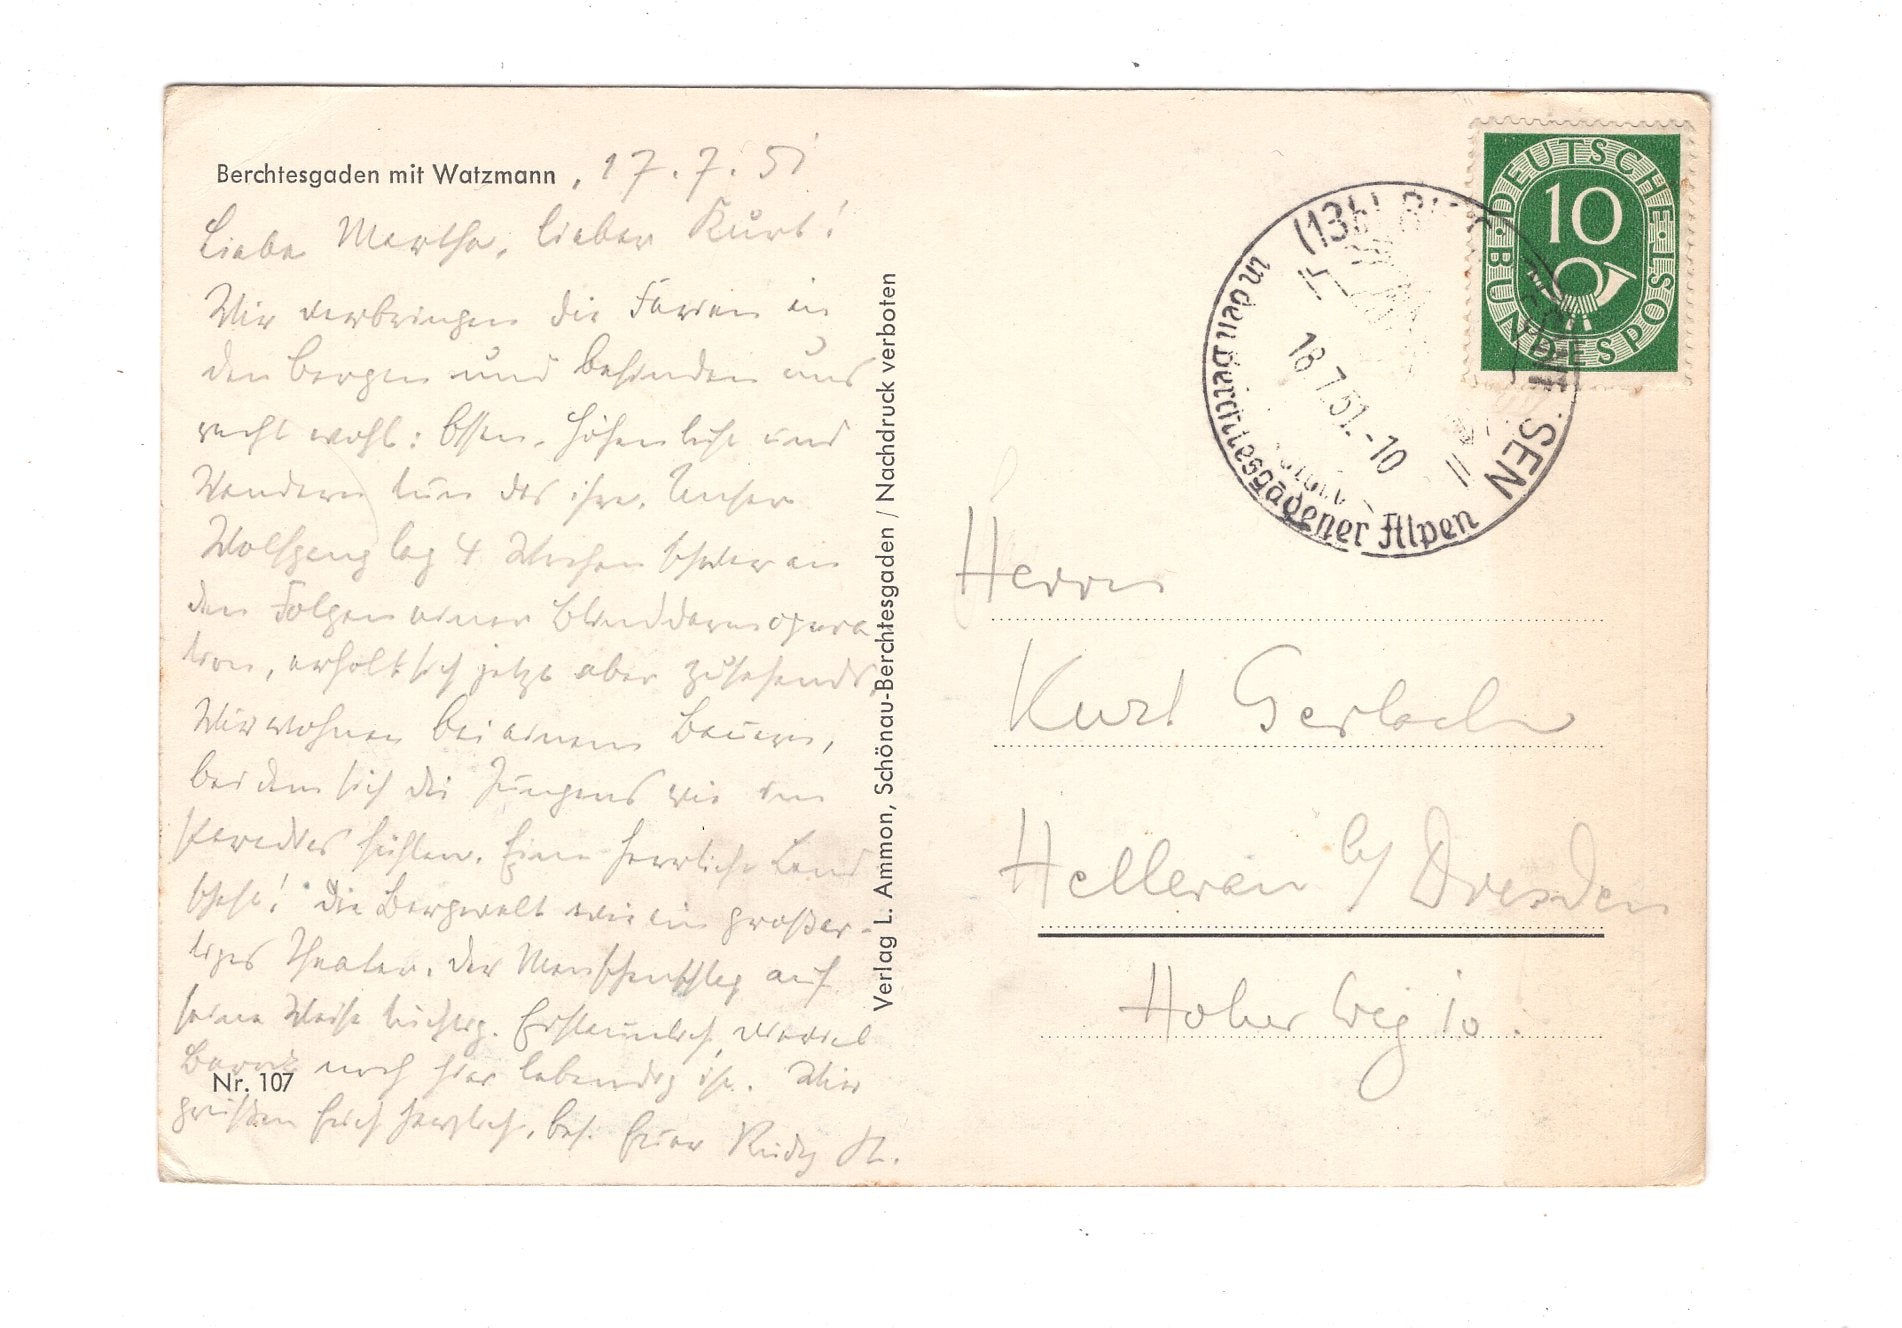 Berchtesgaden mit Watzmann, 17.7.51
Liebe Martha, lieber Kurt!
Wir verbringen die Ferien in
den Bergen und befinden uns
recht wohl: Essen, Höhenluft und
Wandern tun das ihre. Unser
Wolfgang lag 4 Wochen schwer an
den Folgen einer Blinddarmopera-
tion, erholt sich jetzt aber zusehends.
Wir wohnen bei einem Bauern,
bei dem sich die Jungens wie im
Paradies fühlen. Eine herrliche Land
schaft! Die Bergwelt wie ein großar-
tiges Theater. Der Menschenschlag auf
seine Weise tüchtig. Erstaunlich, wieviel
Barock noch hier lebendig ist. Wir
grüßen Euch herzlich, bes. Euer Rudy
Nr. 107
Verlag L. Ammon, Schönau-Berchtesgaden / Nachdruck verboten
DEUTSCHE BUNDESPOST
10
(13b)
SEN
18.7.51.-10
in den Berchtesgadener Alpen
Herrn
Kurt Gerlach
Hellerau b/ Dresden
Hoher Weg 10.